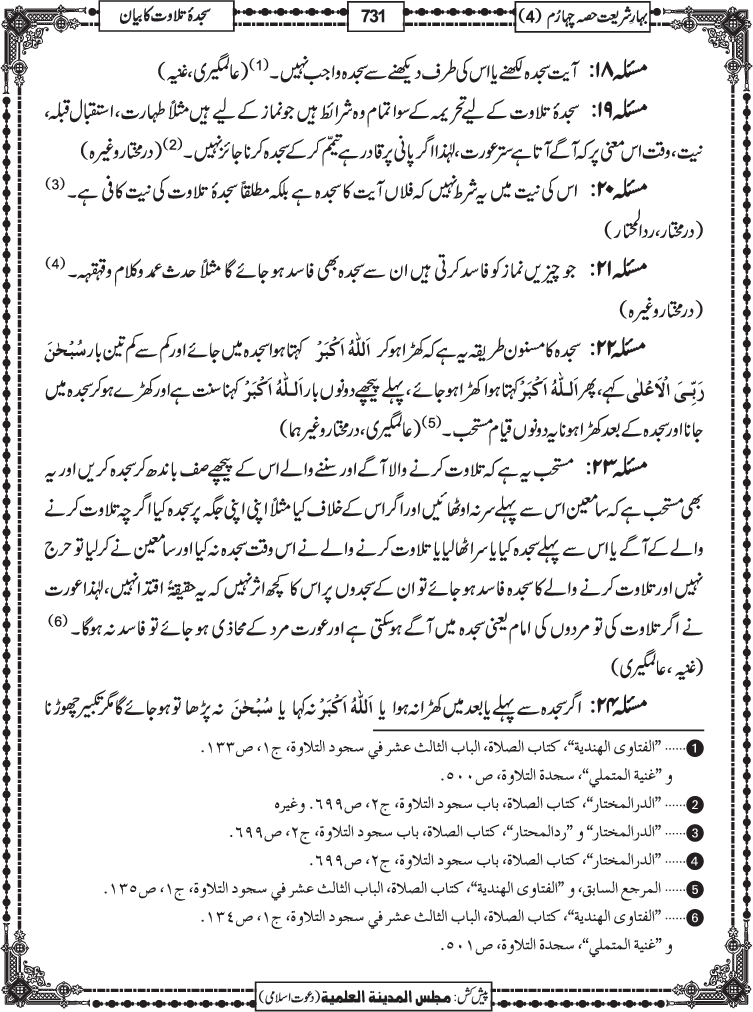 بہارِ شریعت حصہ چہارم (4)
731
سجدۂ تلاوت کا بیان
مسئلہ ۱۸: آیت سجدہ لکھنے یا اس کی طرف دیکھنے سے سجدہ واجب نہیں۔(1) (عالمگیری، غنیہ)
مسئلہ ۱۹: سجدۂ تلاوت کے لیے تحریمہ کے سوا تمام وہ شرائط ہیں جو نماز کے لیے ہیں مثلاً طہارت، استقبال قبلہ،
نیت، وقت اس معنی پر کہ آگے آتا ہے ستر عورت، لہٰذا اگر پانی پر قادر ہے تیمّم کر کے سجدہ کرنا جائز نہیں۔(2) (درمختار وغیرہ)
مسئلہ ۲۰: اس کی نیت میں یہ شرط نہیں کہ فلاں آیت کا سجدہ ہے بلکہ مطلقاً سجدۂ تلاوت کی نیت کافی ہے۔(3)
(درمختار، ردالمحتار)
مسئلہ ۲۱: جو چیزیں نماز کو فاسد کرتی ہیں ان سے سجدہ بھی فاسد ہو جائے گا مثلاً حدث عمد و کلام و قہقہہ۔(4)
(درمختار وغیرہ)
مسئلہ ۲۲: سجدہ کا مسنون طریقہ یہ ہے کہ کھڑا ہو کر اَللّٰہُ اَکْبَرْ کہتا ہوا سجدہ میں جائے اور کم سے کم تین بار سُبْحٰنَ
رَبِّیَ الْاَعْلٰی کہے، پھر اَللّٰہُ اَکْبَرْ کہتا ہوا کھڑا ہو جائے، پہلے پیچھے دونوں بار اَللّٰہُ اَکْبَرْ کہنا سنت ہے اور کھڑے ہو کر سجدہ میں
جانا اور سجدہ کے بعد کھڑا ہونا یہ دونوں قیام مستحب۔(5) (عالمگیری، درمختار وغیرہما)
مسئلہ ۲۳: مستحب یہ ہے کہ تلاوت کرنے والا آگے اور سننے والے اس کے پیچھے صف باندھ کر سجدہ کریں اور یہ
بھی مستحب ہے کہ سامعین اس سے پہلے سر نہ اوٹھائیں اور اگر اس کے خلاف کیا مثلاً اپنی اپنی جگہ پر سجدہ کیا اگرچہ تلاوت کرنے
والے کے آگے یا اس سے پہلے سجدہ کیا یا سر اٹھا لیا یا تلاوت کرنے والے نے اس وقت سجدہ نہ کیا اور سامعین نے کر لیا تو حرج
نہیں اور تلاوت کرنے والے کا سجدہ فاسد ہو جائے تو ان کے سجدوں پر اس کا کچھ اثر نہیں کہ یہ حقیقۃً اقتدا نہیں، لہٰذا عورت
نے اگر تلاوت کی تو مردوں کی امام یعنی سجدہ میں آگے ہو سکتی ہے اور عورت مرد کے محاذی ہو جائے تو فاسد نہ ہوگا۔(6)
(غنیہ، عالمگیری)
مسئلہ ۲۴: اگر سجدہ سے پہلے یا بعد میں کھڑا نہ ہوا یا اَللّٰہُ اَکْبَرْ نہ کہا یا سُبْحٰنَ نہ پڑھا تو ہو جائے گا مگر تکبیر چھوڑنا
1 ...... ”الفتاوی الهندیة“، کتاب الصلاة، الباب الثالث عشر في سجود التلاوة، ج۱، ص۱۳۳.
و ”غنیة المتملي“، سجدة التلاوة، ص۵۰۰.
2 ...... ”الدرالمختار“، کتاب الصلاة، باب سجود التلاوة، ج۲، ص۶۹۹. وغیرہ
3 ...... ”الدرالمختار“ و ”ردالمحتار“، کتاب الصلاة، باب سجود التلاوة، ج۲، ص۶۹۹.
4 ...... ”الدرالمختار“، کتاب الصلاة، باب سجود التلاوة، ج۲، ص۶۹۹.
5 ...... المرجع السابق، و ”الفتاوی الهندیة“، کتاب الصلاة، الباب الثالث عشر في سجود التلاوة، ج۱، ص۱۳۵.
6 ...... ”الفتاوی الهندیة“، کتاب الصلاة، الباب الثالث عشر في سجود التلاوة، ج۱، ص۱۳٤.
و ”غنیة المتملي“، سجدة التلاوة، ص۵۰۱.
پیش کش: مجلس المدینة العلمیة (دعوت اسلامی)